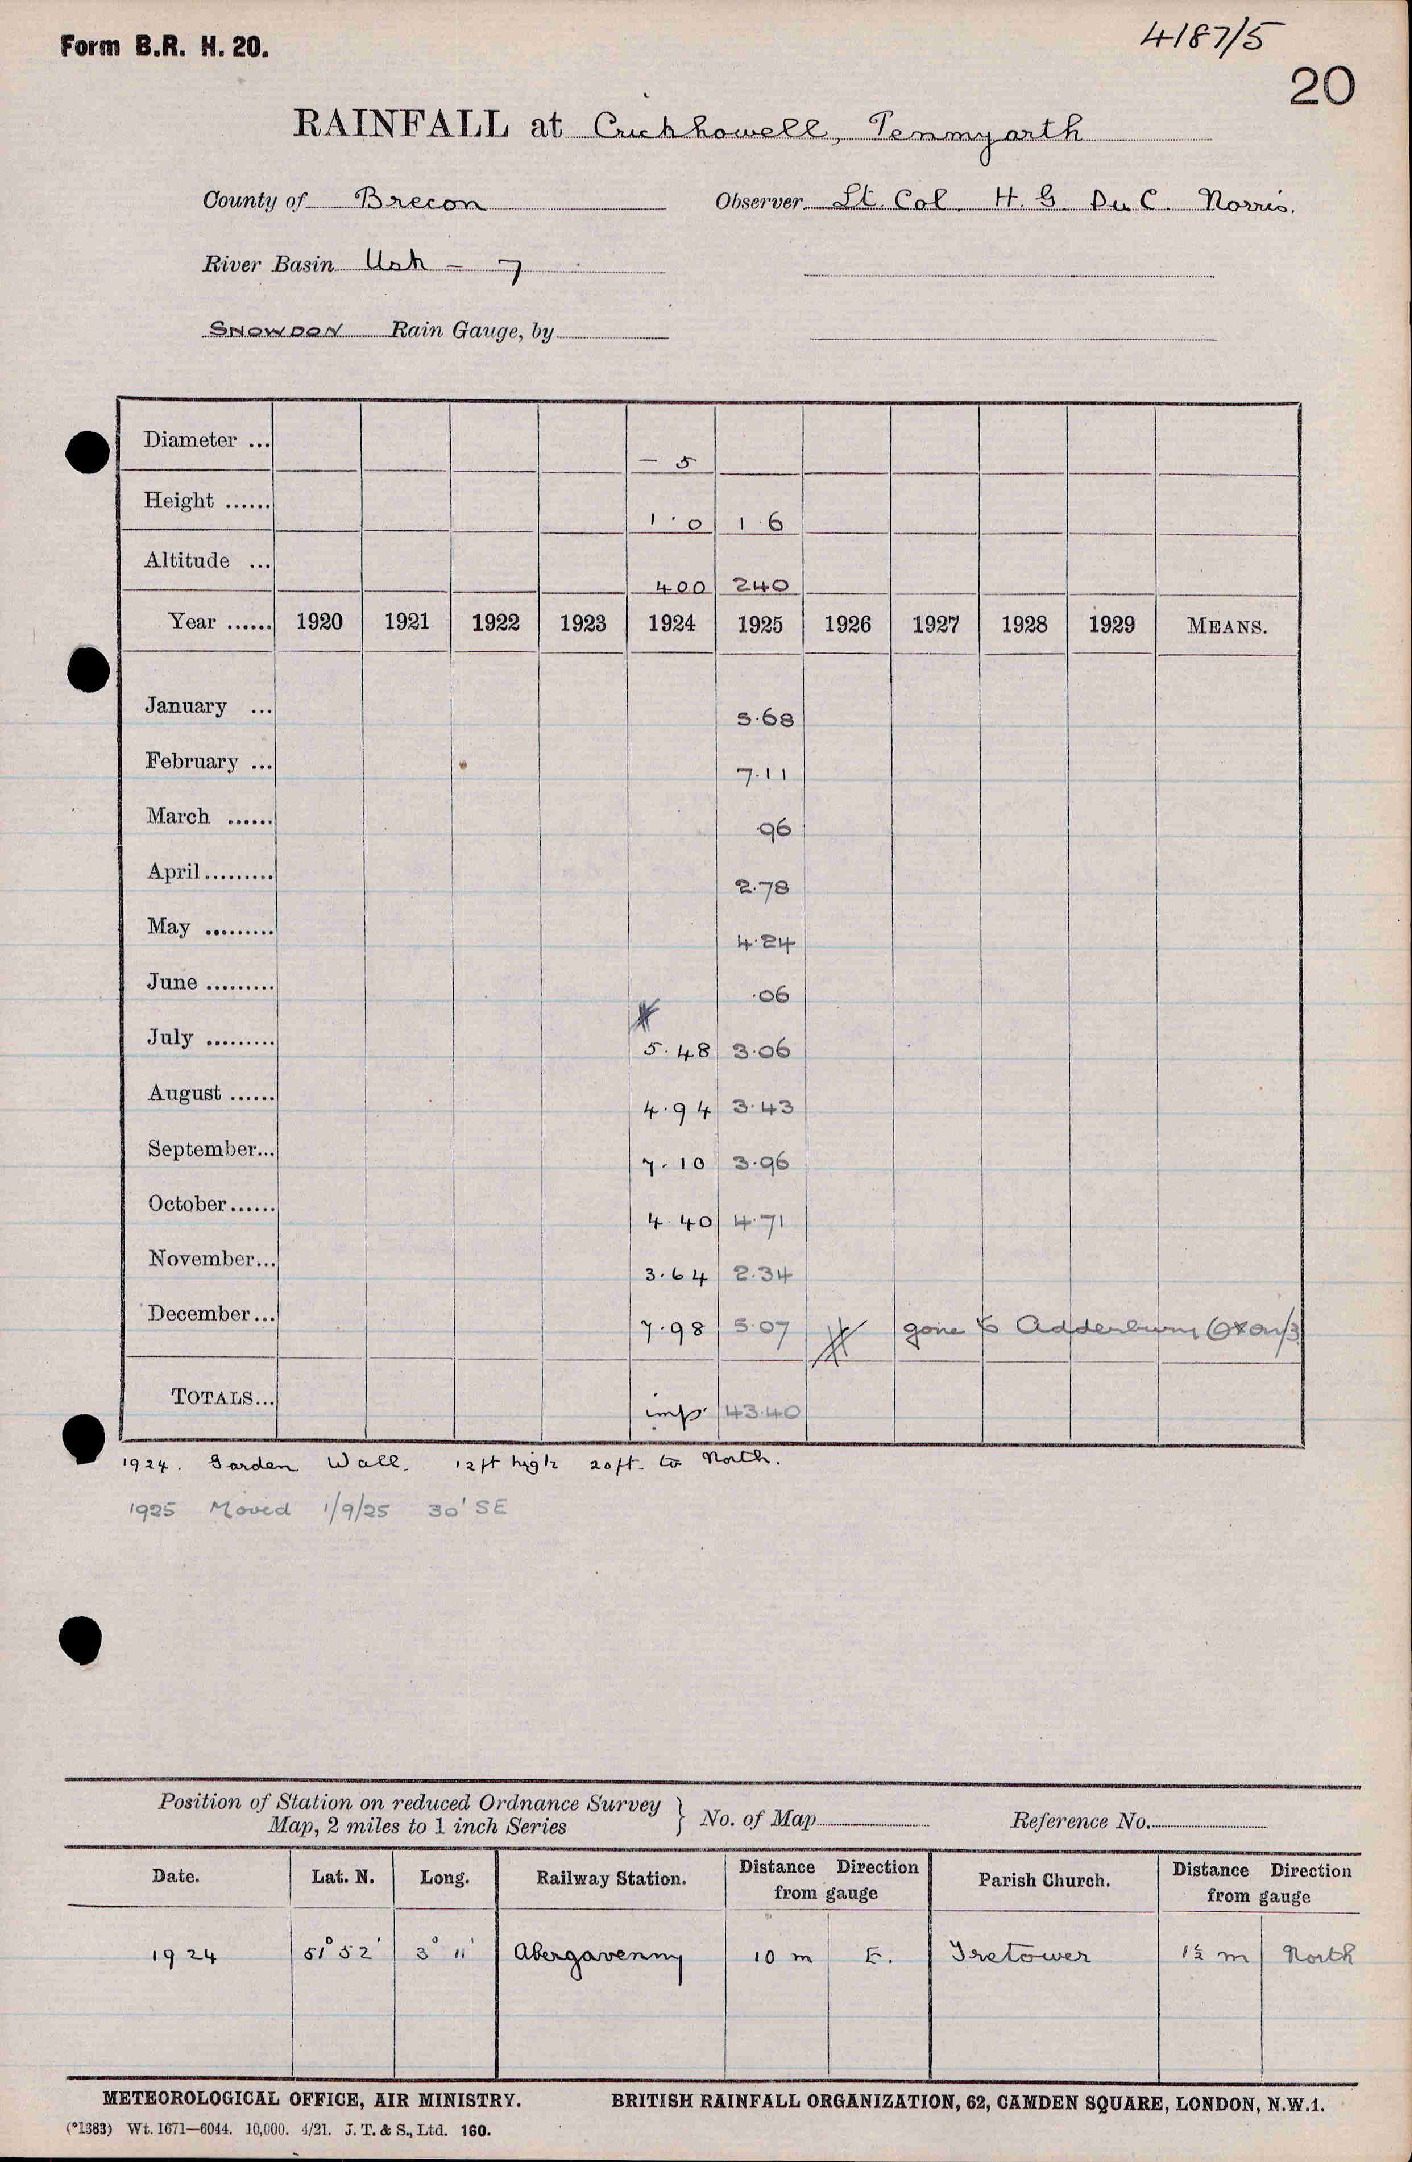 Form B.R. H. 20.
4187/5
20
RAINFALL at Crickhowell, Penmyarth
County of Brecon Observer Lt. Col H. G. Du C. Norris.
River Basin Usk – 7
SNOWDON Rain Gauge, by
Diameter ... – 5
Height ...... 1·0 1 6
Altitude ... 400 240
Year ...... 1920 1921 1922 1923 1924 1925 1926 1927 1928 1929 MEANS.
January ... 5·68
February ... 7·11
March ...... ·96
April ......... 2·78
May ......... 4·24
June ......... ·06
July ......... 5·48 3·06
August ...... 4·94 3·43
September... 7·10 3·96
October ...... 4 40 4·71
November... 3·64 2·34
December... 7·98 5·07 gone to Adderbury Oxon/3
TOTALS... imp. 43·40
1924. Garden Wall. 12ft high 20ft. to North.
1925 Moved 1/9/25 30' SE
Position of Station on reduced Ordnance Survey
Map, 2 miles to 1 inch Series } No. of Map Reference No.
Date. Lat. N. Long. Railway Station. Distance Direction from gauge Parish Church. Distance Direction from gauge
1924 51° 52' 3° 11' Abergavenny 10 m E. Tretower 1½ m North
METEOROLOGICAL OFFICE, AIR MINISTRY. BRITISH RAINFALL ORGANIZATION, 62, CAMDEN SQUARE, LONDON, N.W.1.
(*1383) Wt. 1671—6044. 10,000. 4/21. J. T. & S., Ltd. 160.